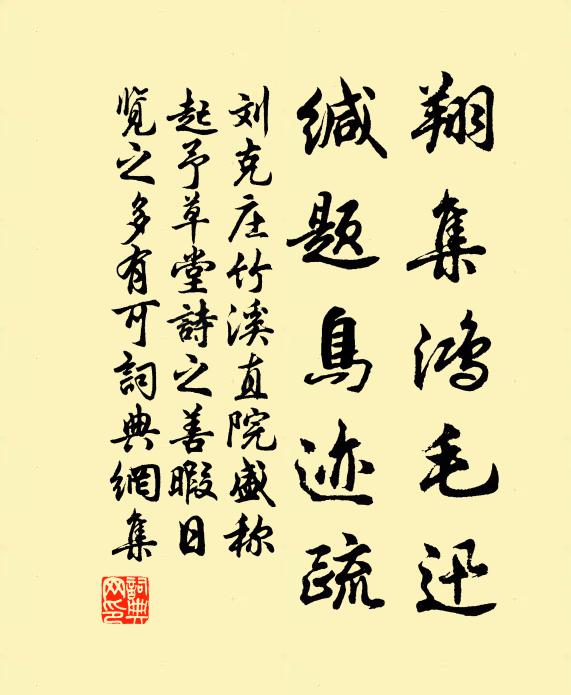 翔集鸿毛迅
缄题鳥迹疏
刘克庄竹溪直院盛称
起予草堂詩之善暇日
览之多有可詞典網集
詞典网印